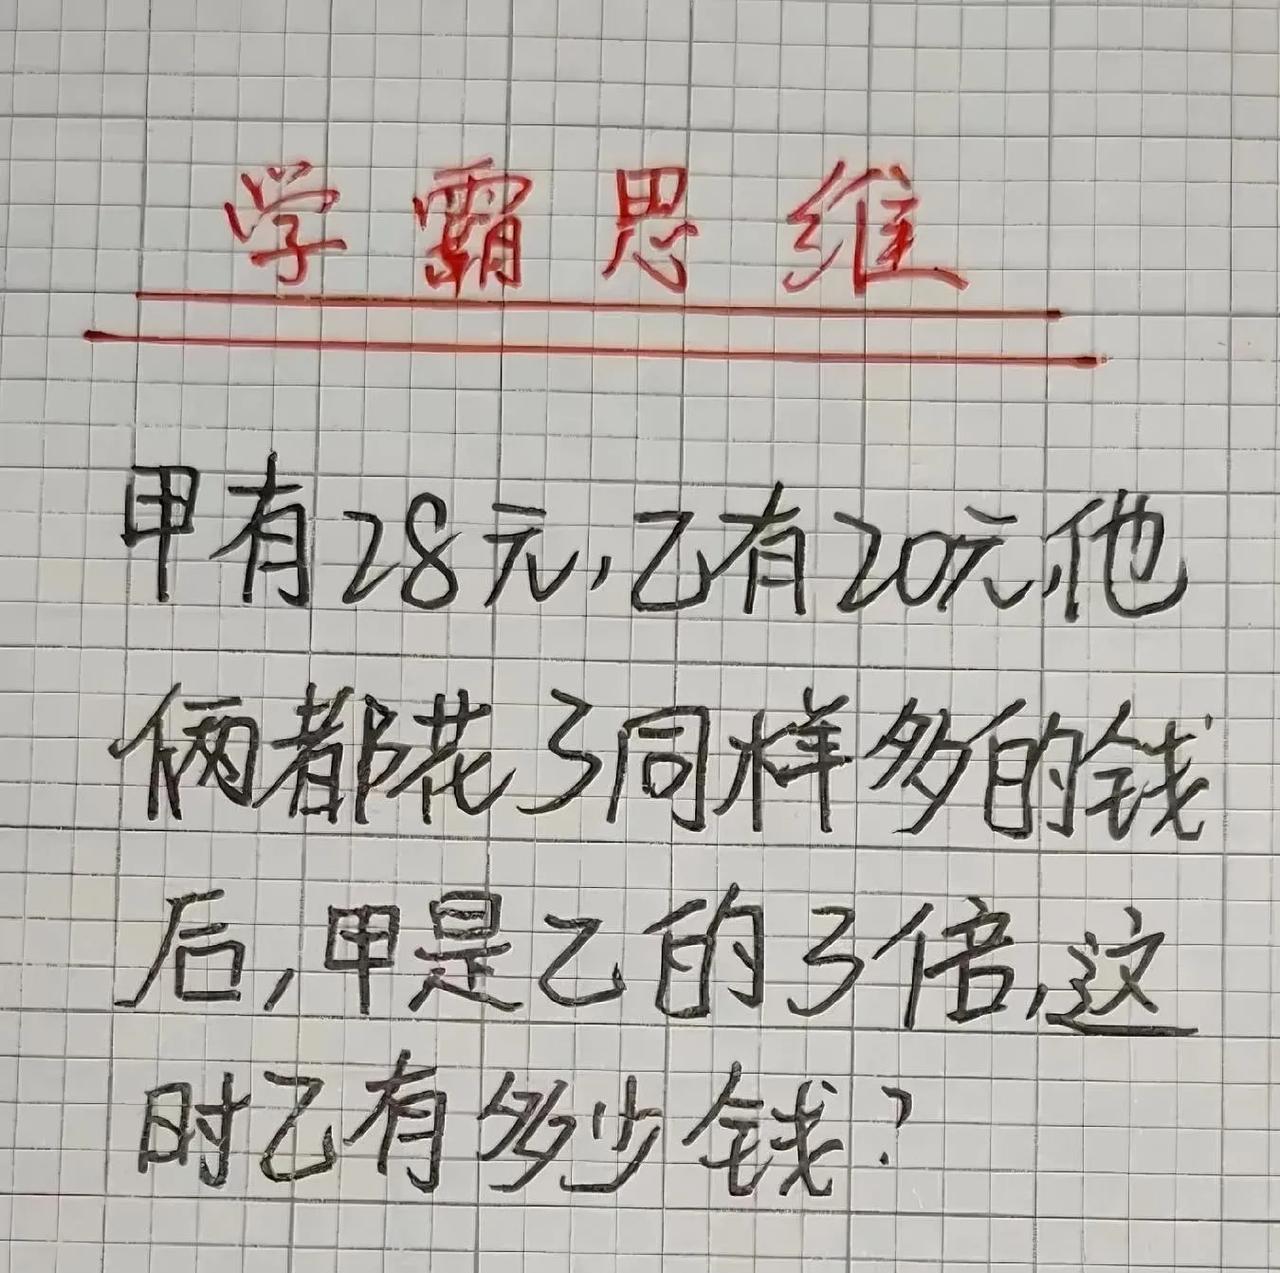 学霸思维
甲有28元,乙有20元,他
俩都花了同样多的钱
后,甲是乙的3倍,这
时乙有多少钱?